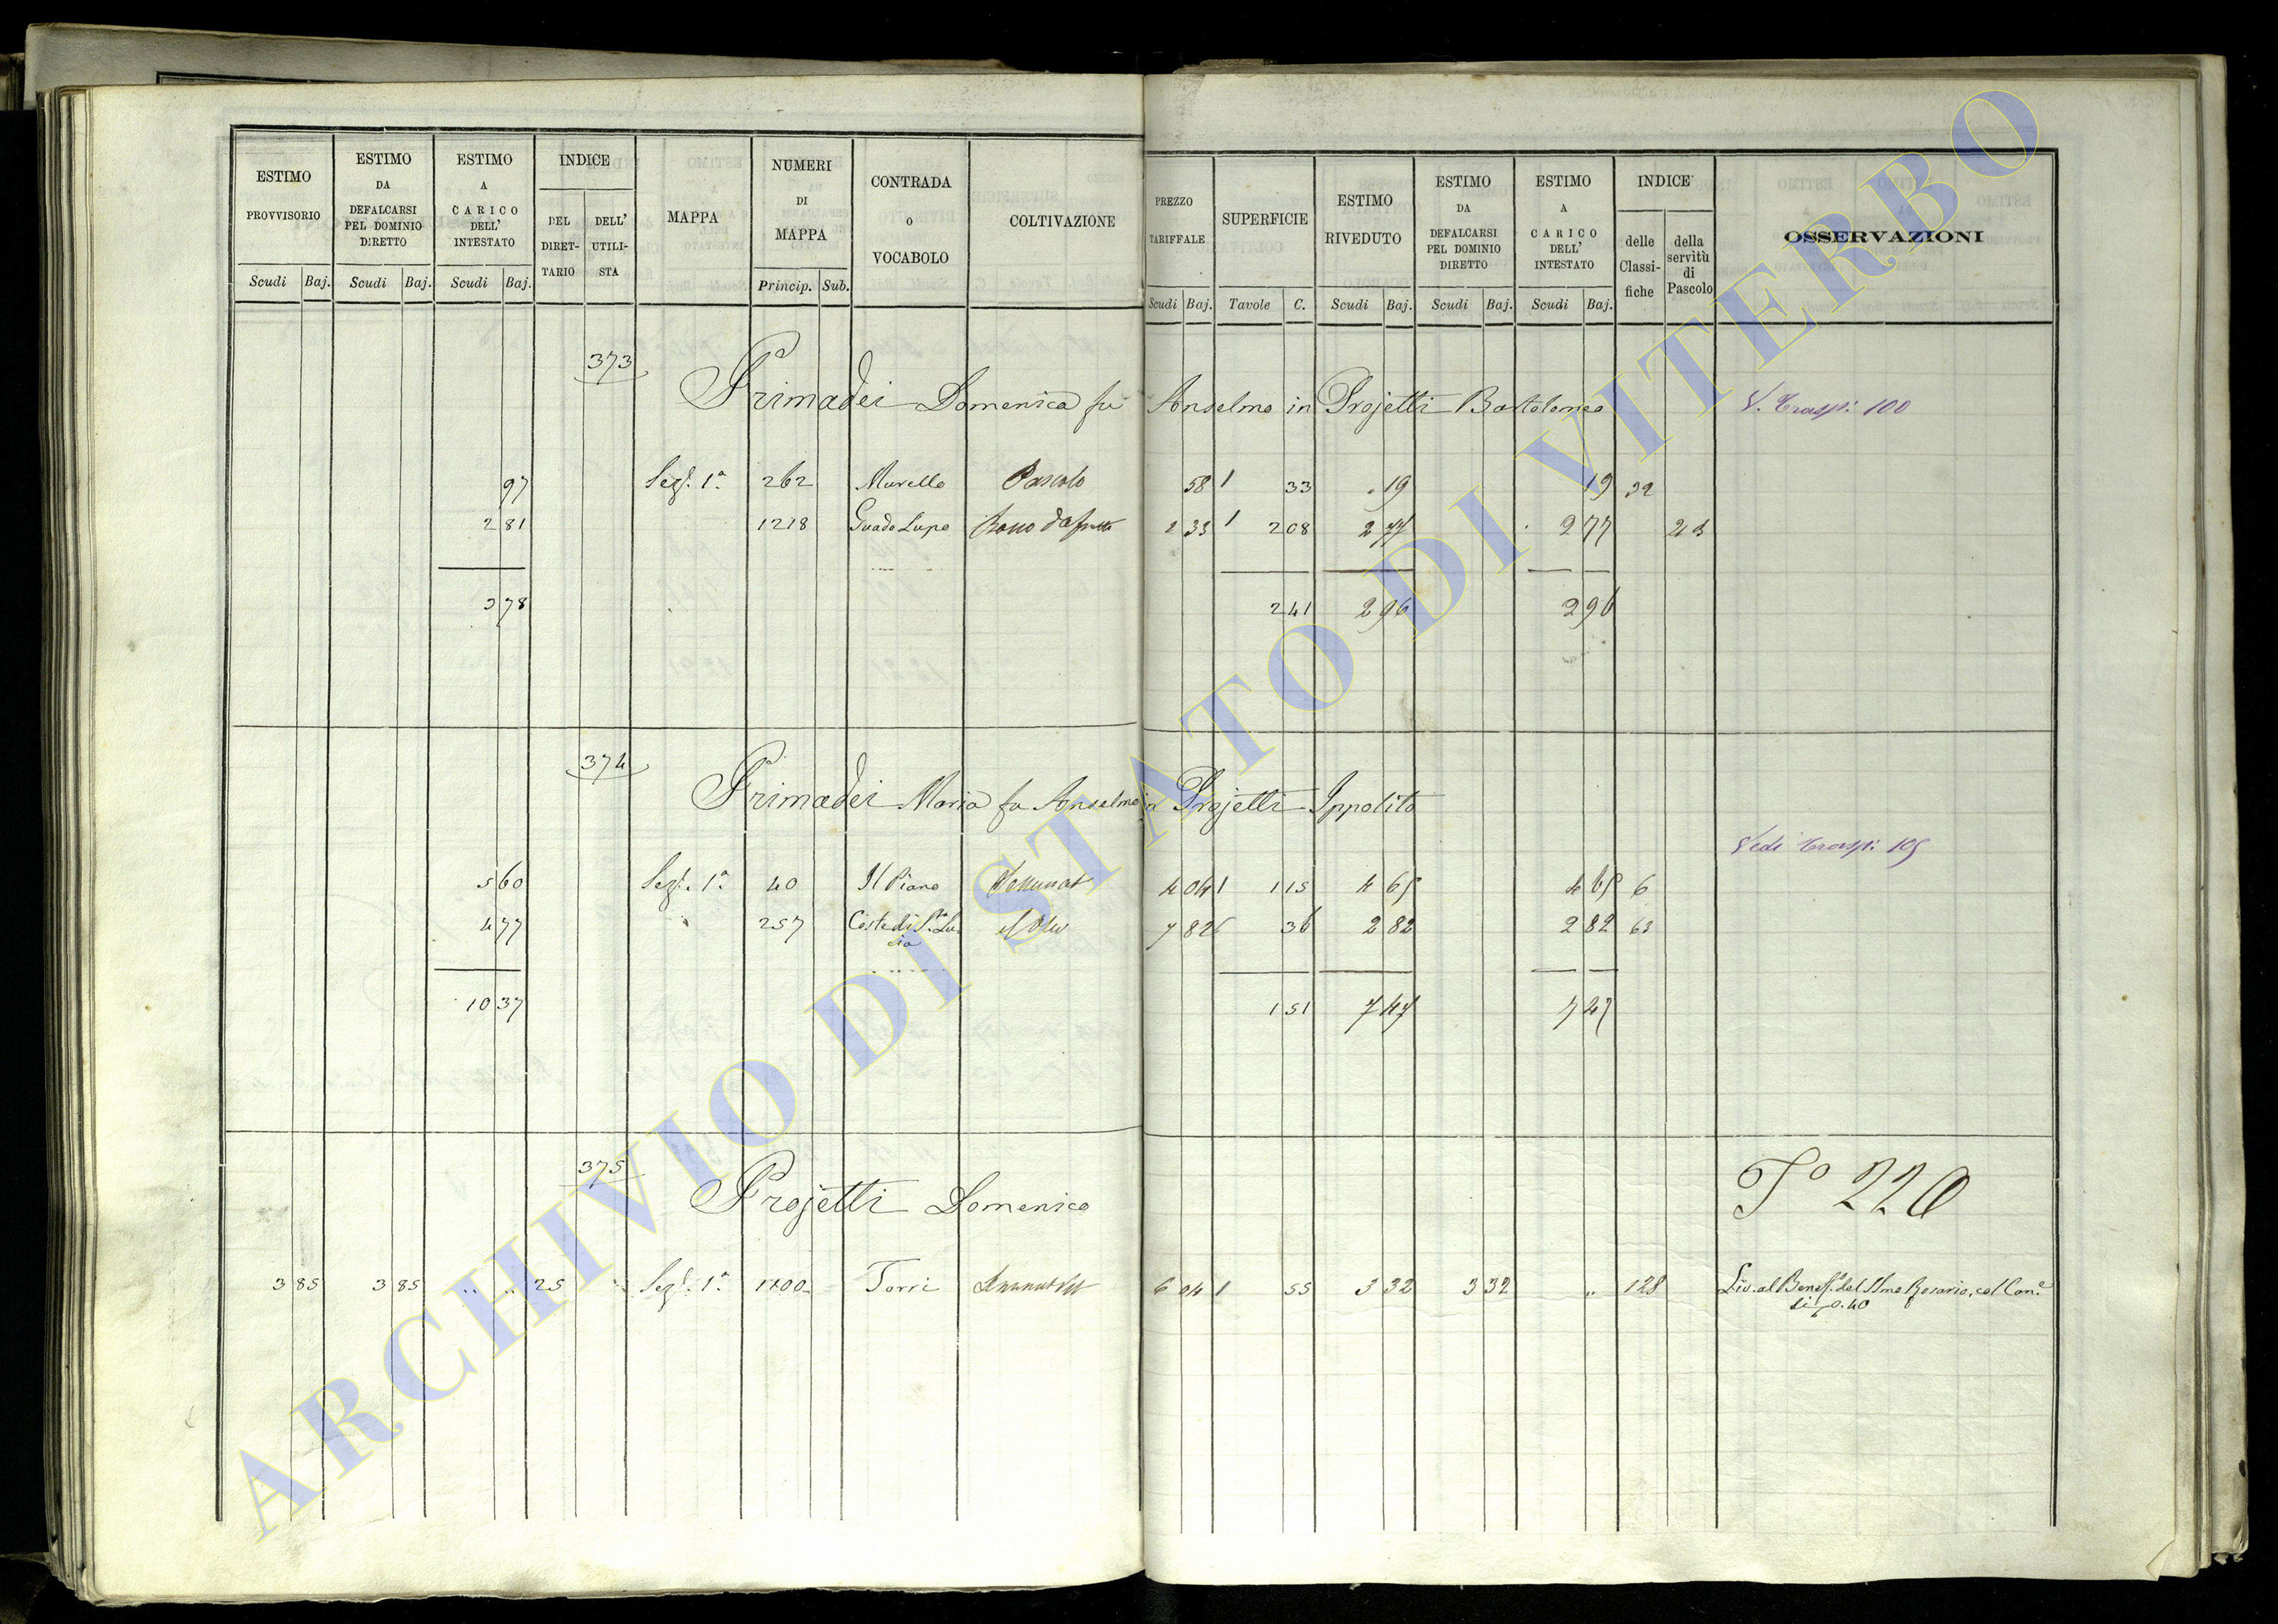 ESTIMO PROVVISORIO Scudi Baj.
ESTIMO DA DEFALCARSI PEL DOMINIO DIRETTO Scudi Baj.
ESTIMO A CARICO DELL' INTESTATO Scudi Baj.
INDICE DEL DIRETTARIO DELL' UTILISTA
MAPPA
NUMERI DI MAPPA Princip. Sub.
CONTRADA O VOCABOLO
COLTIVAZIONE
PREZZO TARIFFALE Scudi Baj.
SUPERFICIE Tavole C.
ESTIMO RIVEDUTO Scudi Baj.
ESTIMO DA DEFALCARSI PEL DOMINIO DIRETTO Scudi Baj.
ESTIMO A CARICO DELL' INTESTATO Scudi Baj.
INDICE delle Classifiche della servitù di Pascolo
OSSERVAZIONI
373
Primadei Domenica fu Anselmo in Projetti Bartolomeo V. Trasp: 100
97 Sez. 1a 262 Murello Pascolo 58 1 33 19 19 32
2 81 1218 Guado Lupo 2 33 1 2 08 2 77 2 77
3 78 2 41 2 96 2 96
374
Primadei Maria fu Anselmo in Projetti Ippolito
Vedi Trasp: 105
5 60 Sez. 1a 40 Il Piano 4 04 1 1 15 4 65 4 65 6
4 77 257 Coste di S.ta Lucia 7 82 36 2 82 2 82 63
10 37 1 51 7 47 7 47
375
Projetti Domenico To 220
3 85 3 85 " " 25 Sez. 1a 1200 Torri 6 04 1 55 3 32 3 32 " 128 Liv. al Benef. del SSmo Rosario, col Can.e
di 0.40
ARCHIVIO DI STATO DI VITERBO